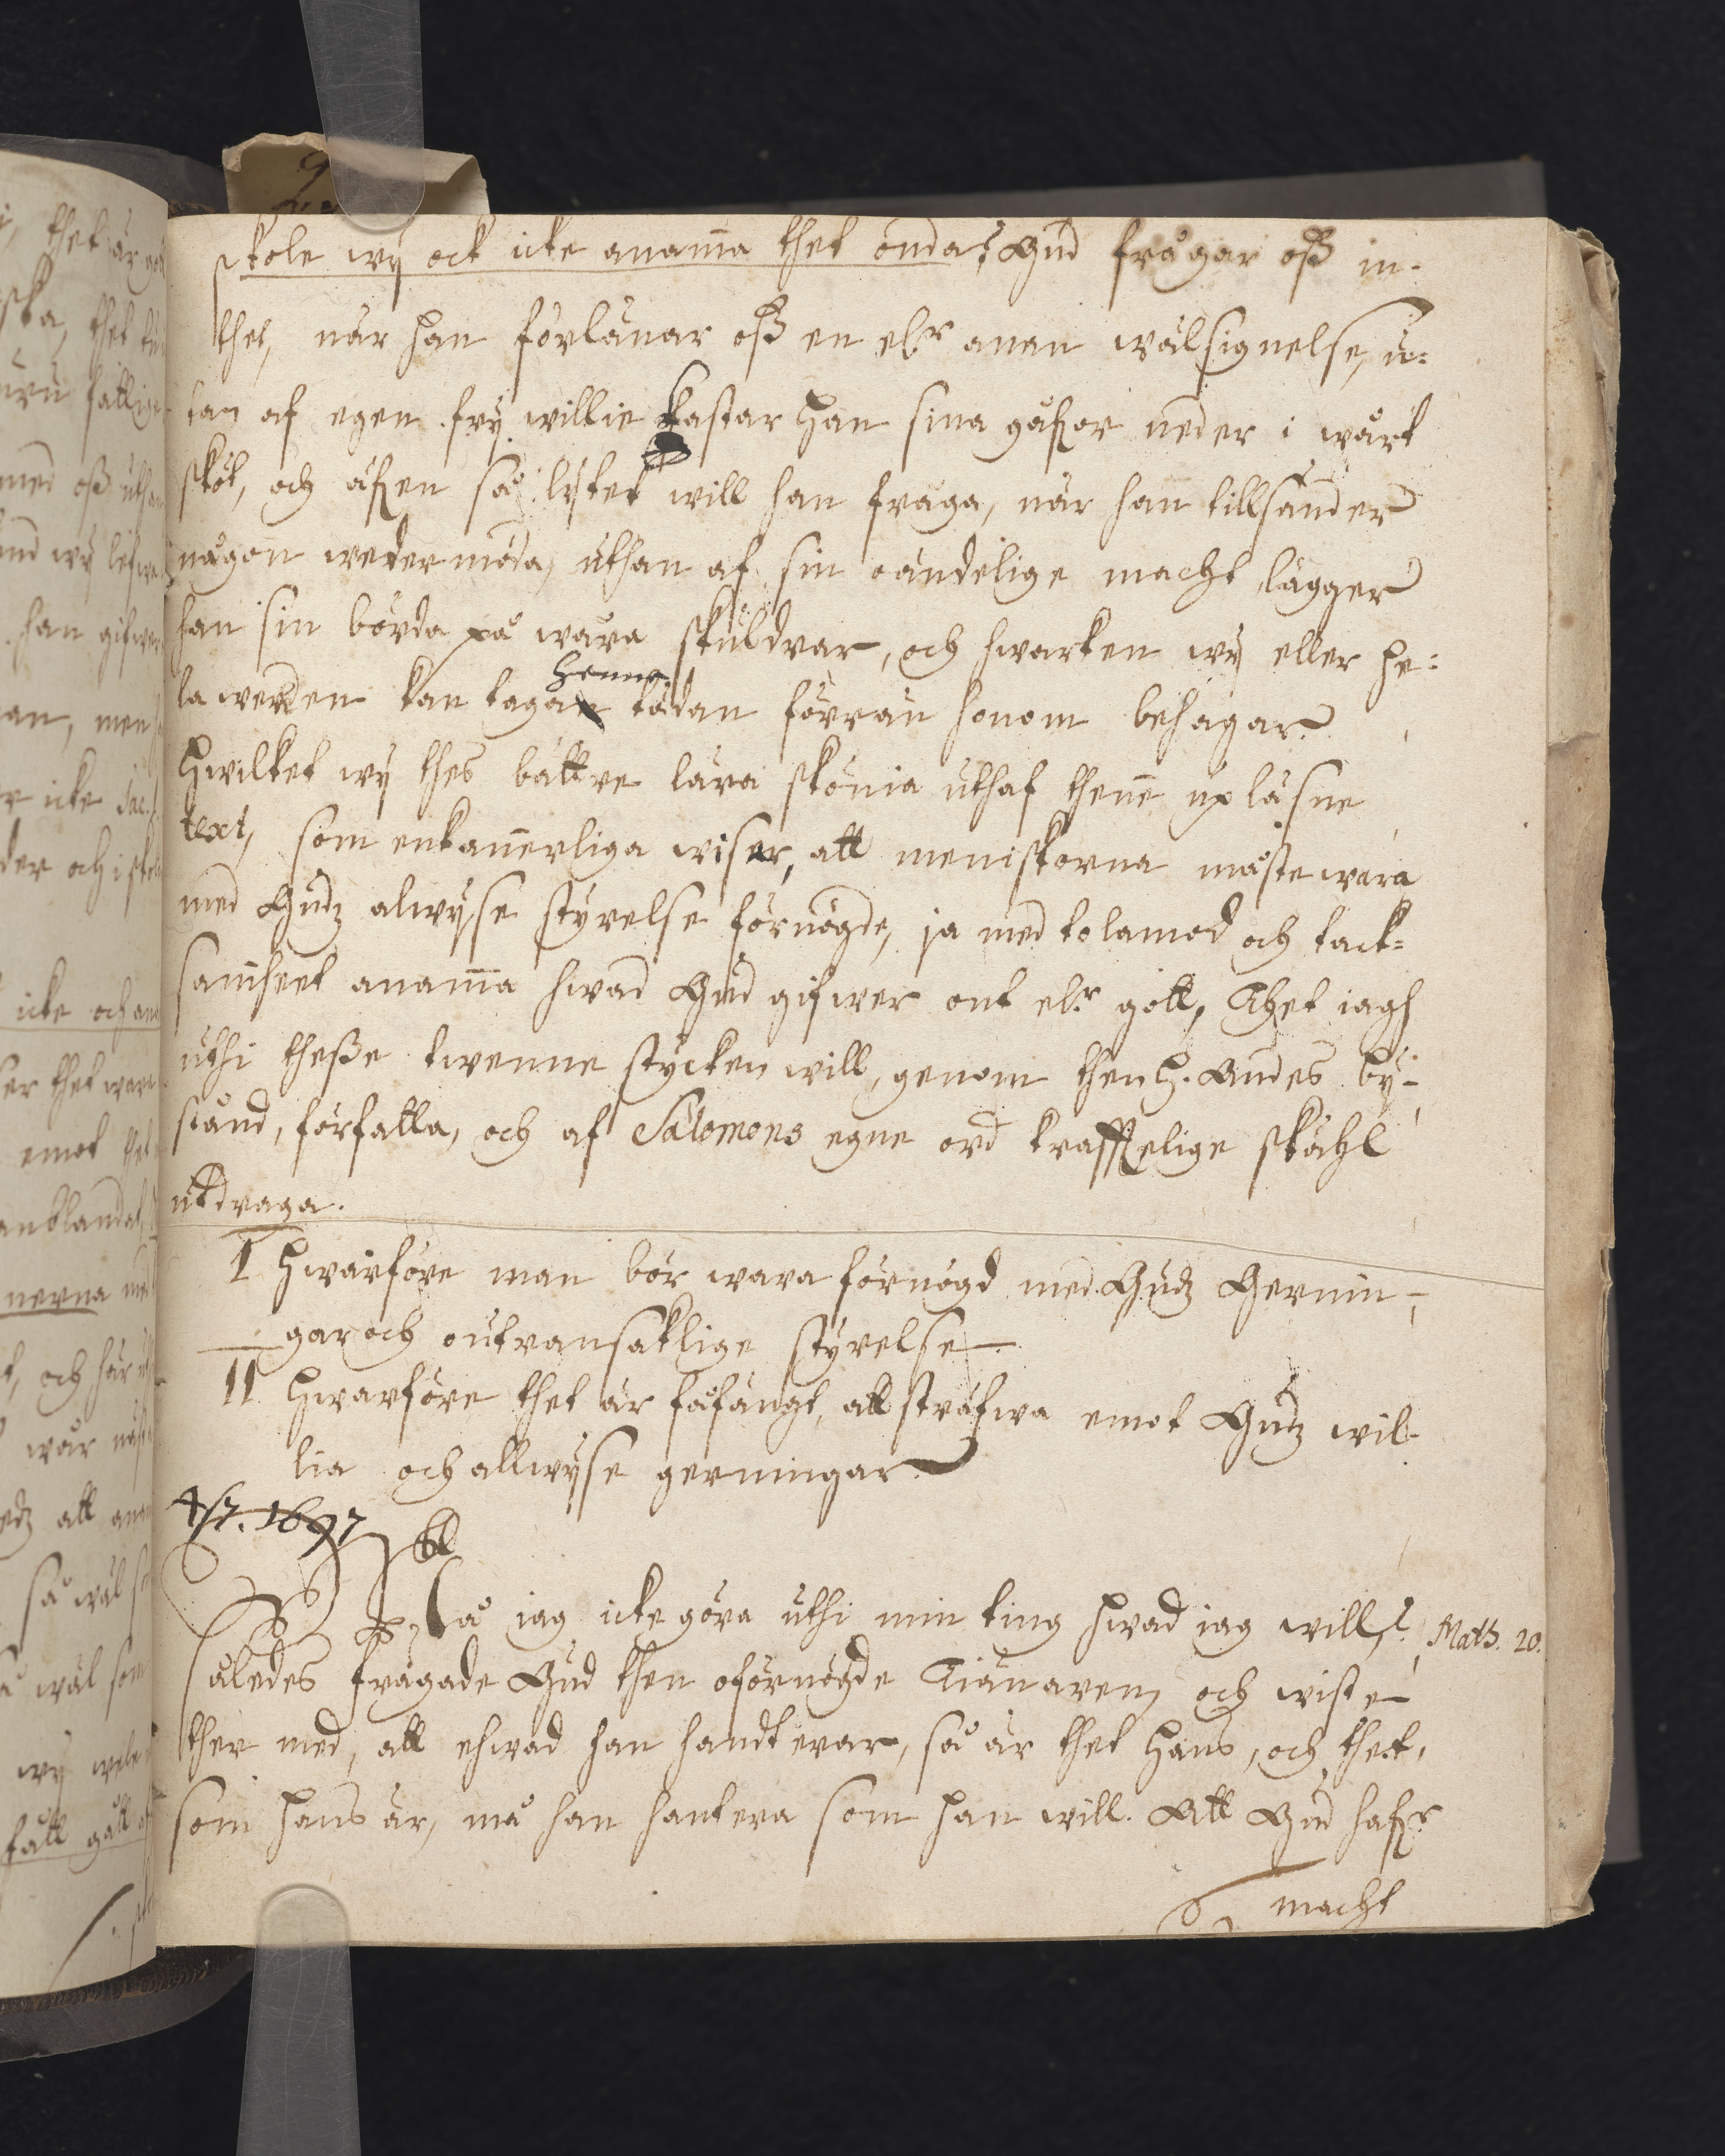 skole wij ock icke anam̄a thet onda? Gud frågar oß in-
thet, när han förlänar oß en elr annan wälsignelse, u-
tan af egen frij willie kastar han sina gåfwor neder i wårt
sköt, och äfwen så lijtet will han fråga, när han tillsänder
någon wedermöda, uthan af sin oändelige macht lägger
han sin börda på wåra skuldrar, och hwarken wij eller he-
henne
la werlden kan taga tädan förrän honom behagar.
Hwilket wij thes bättre lära skönia uthaf then̄e upläsne
text, som enkan̄erliga wiser, att meniskorna måste wara
med Gudz alwijse styrelse förnögde, ja med tolamod och tack-
sam̄heet anam̄a hwad Gud gifwer ont elr gott, Thet iagh
uthi theße twenne stycken will, genom then H. Andes bij-
stånd, författa, och af Salomons egne ord krafftelige skähl
utdraga.
I Hwarföre man bör wara förnögd med Gudz Gernin-
gar och outransaklige styrelse
II Hwarföre thet är fåfängt, att sträfwa emot Gudz wil-
lia och allwijse gerningar.
1697
må iag icke göra uthi min ting hwad iag will? Math. 20.
således frågade Gud then oförnögde Tiänaren, och wiste
ther med, att ehwad han handterar, så är thet hans, och thet,
som hans är, må han hantera som han will. Att Gud hafr
macht